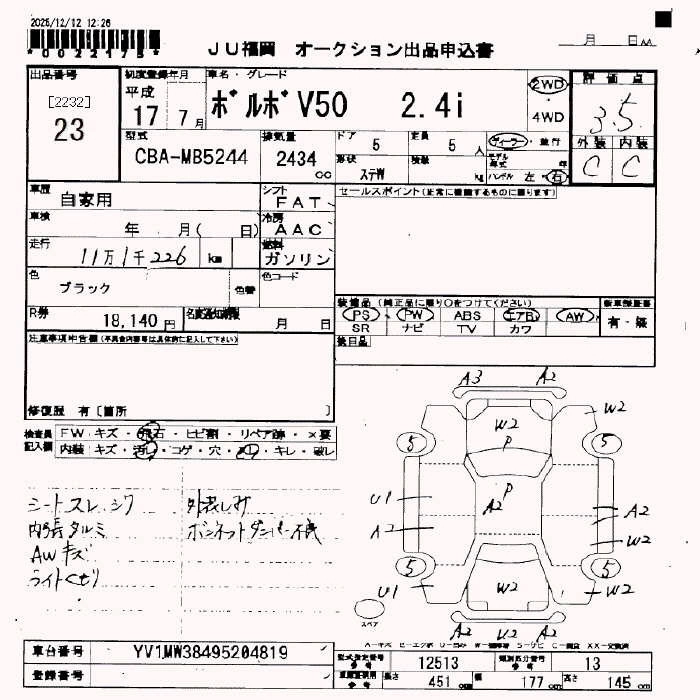 2025/12/12 12:26
*0022175*
JU福岡 オークション出品申込書
月 日
出品番号 初度登録年月 車名・グレード 評価点
[2232] 平成 2WD
23 17 7月 ボルボV50 2.4i ・ 3.5
4WD
型式 排気量 ドア 定員 ディーラー・並行 外装 内装
CBA-MB5244 2434 cc 5 5人 モデル年式 年 C C
形状 ステW 積載 kg ハンドル 左・右
車歴 自家用 シフト FAT セールスポイント(正常に機能するものに限ります)
車検 年 月( 日) 冷房 AAC
走行 11万1千226 km 燃料 ガソリン
色 ブラック 色替 色コード
装備品(純正品に限り○をつけてください) 新車保証書
R券 18,140円 名変通知期限 月 日 PS PW ABS エアB AW 有・無
SR ナビ TV カワ
注意事項申告欄(不具合内容等は具体的に記入して下さい) 後日品
修復歴 有〔箇所 〕
検査員 FW キズ・飛石・ヒビ割・リペア跡・×要
記入欄 内装 キズ・汚れ・コゲ・穴・・キレ・破レ
シートスレ、シワ 外装しみ
内張タルミ ボンネットダンパー不良
AWキズ
ライトくもり
A3 A2
W2 W2
P
5 5
P
U1 A2 A2
A2 W2
5 5
U1 W2 W2
スペア A2 U2 A2
車台番号 YV1MW38495204819
型式指定番号 12513 類別区分番号 13
登録番号
長さ 451cm 幅 177cm 高さ 145cm